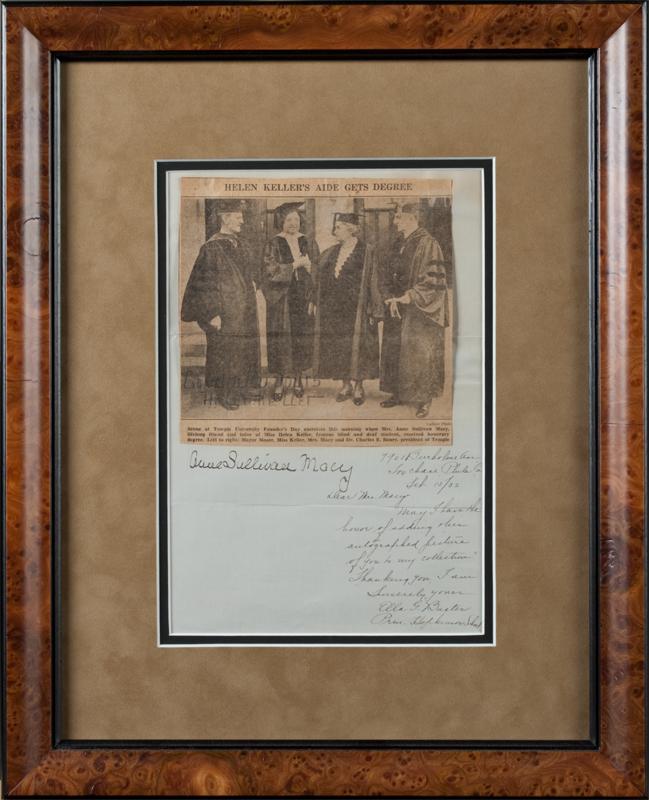 HELEN KELLER'S AIDE GETS DEGREE
HELEN KELLER
Ledger Photo
Scene at Temple University Founder's Day exercises this morning when Mrs. Anne Sullivan Macy,
lifelong friend and tutor of Miss Helen Keller, famous blind and deaf student, received honorary
degree. Left to right: Mayor Moore, Miss Keller, Mrs. Macy and Dr. Charles E. Beury, president of Temple
Anne Sullivan Macy
Phila Pa
Feb
Dear Mrs. Macy
May I have the
honor of adding
autographed picture
of you to my collection
Thanking you I am
Sincerely yours
Ella
Prin.